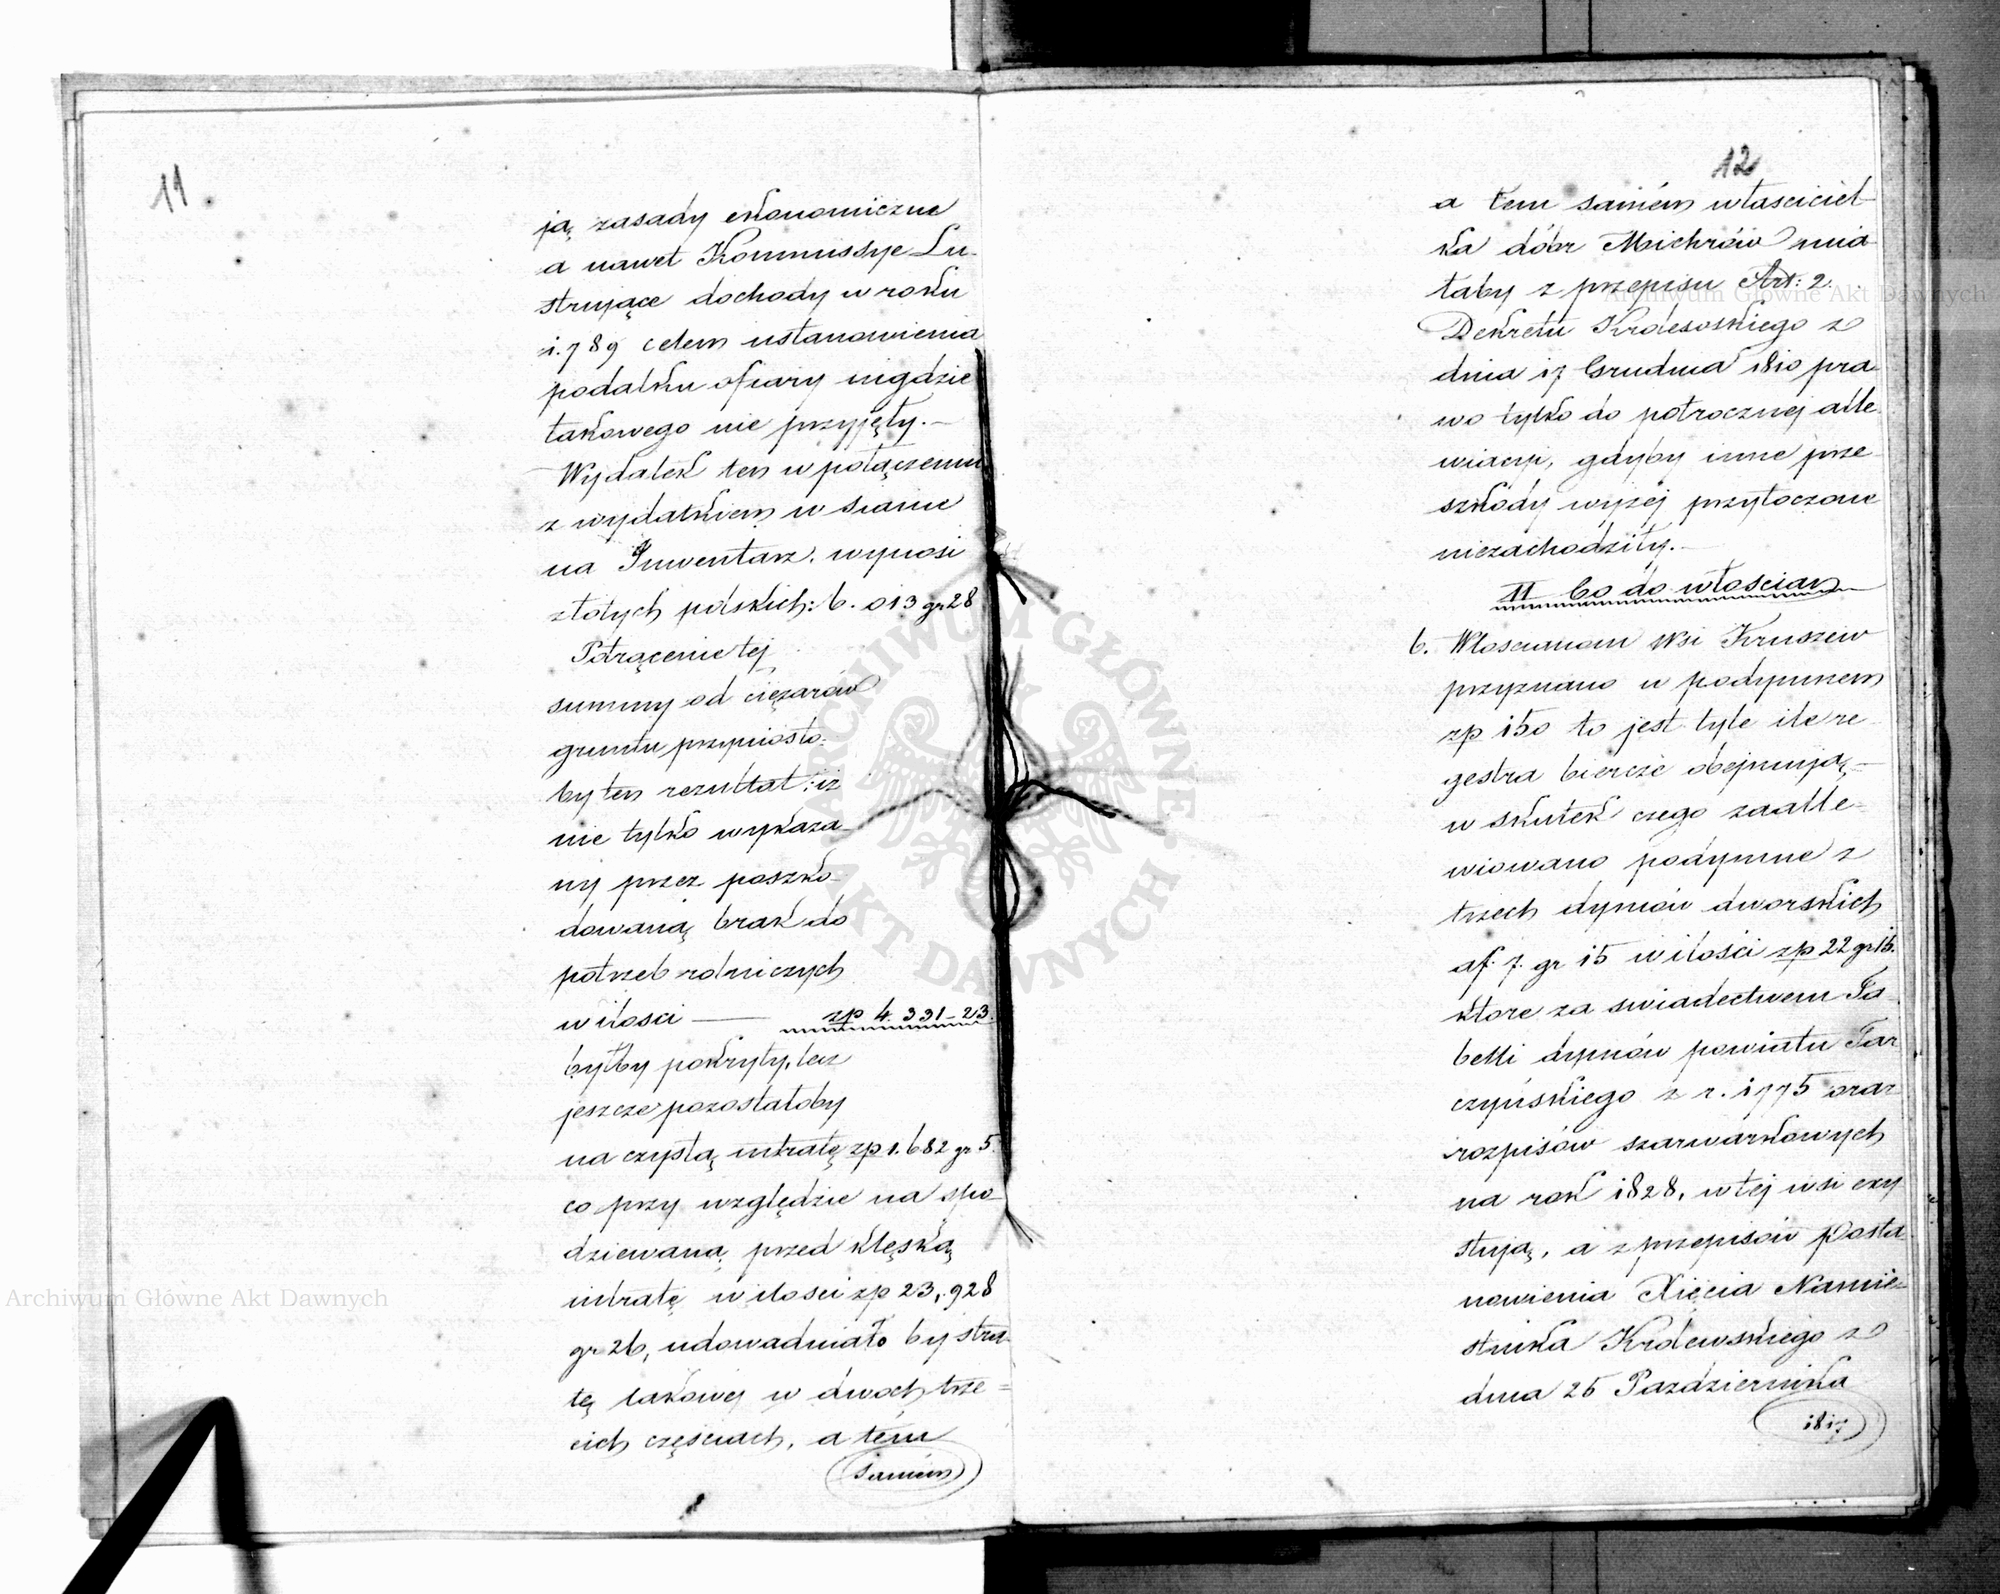 11
ją zasady ekonomiczne
a nawet Kommissye Lu-
strujące dochody w roku
1.789 celem ustanowienia
podatku ofiary nigdzie
takowego nie przyjęły.—
Wydatek ten w połączeniu
z wydatkiem w sianie
na Inwentarz. wynosi
złotych polskich: 6.013 gr 28
Potrącenie tej
summy od ciężarów
gruntu przyniosło-
by ten rezultat: iż
nie tylko wykaza-
ny przez poszko-
dowaną brak do
potrzeb rolniczych
w ilosci — zp 4.331-23.
byłby pokryty, lecz
jeszcze pozostałoby
na czystą intratę zp 1.682 gr 5.
co przy względzie na spo-
dziewaną przed klęską
intratę w ilosci zp 23,928
gr 26, udowadniało by stra-
tę takowej w dwoch trze=
cich częsciach, a tém
samém
12
a tem samém własciciel-
ka dóbr Michrów mia-
łaby z przepisu Art: 2.
Dekretu Krolesoskiego z
dnia 17 Grudnia 1810 pra-
wo tylko do połrocznej alle-
wiacyi, gdyby inne prze-
szkody wyżej przytoczone
niezachodziły.—
II Co do włoscian
6. Włoscianom Wsi Kruszew
przyznano w podymnem
zp 150 to jest tyle ile re-
gestra biercze obejmują,—
w skutek czego zaalle-
wiowano podymne z
trzech dymów dworskich
af. 7. gr 15 w ilości zp 22 gr 15.
ktore za swiadectwem Ta-
belli dymów powiatu Tar
czyńskiego z r. 1775 oraz
rozpisów szarwarkowych
na rok 1828, w tej wsi exy
stują, a z przepisów Posta
nowienia Xięcia Namie-
stnika Królewskiego z
dnia 25 Pazdziernika
1817
Archiwum Główne Akt Dawnych
Archiwum Główne Akt Dawnych
ARCHIWUM GŁÓWNE AKT DAWNYCH